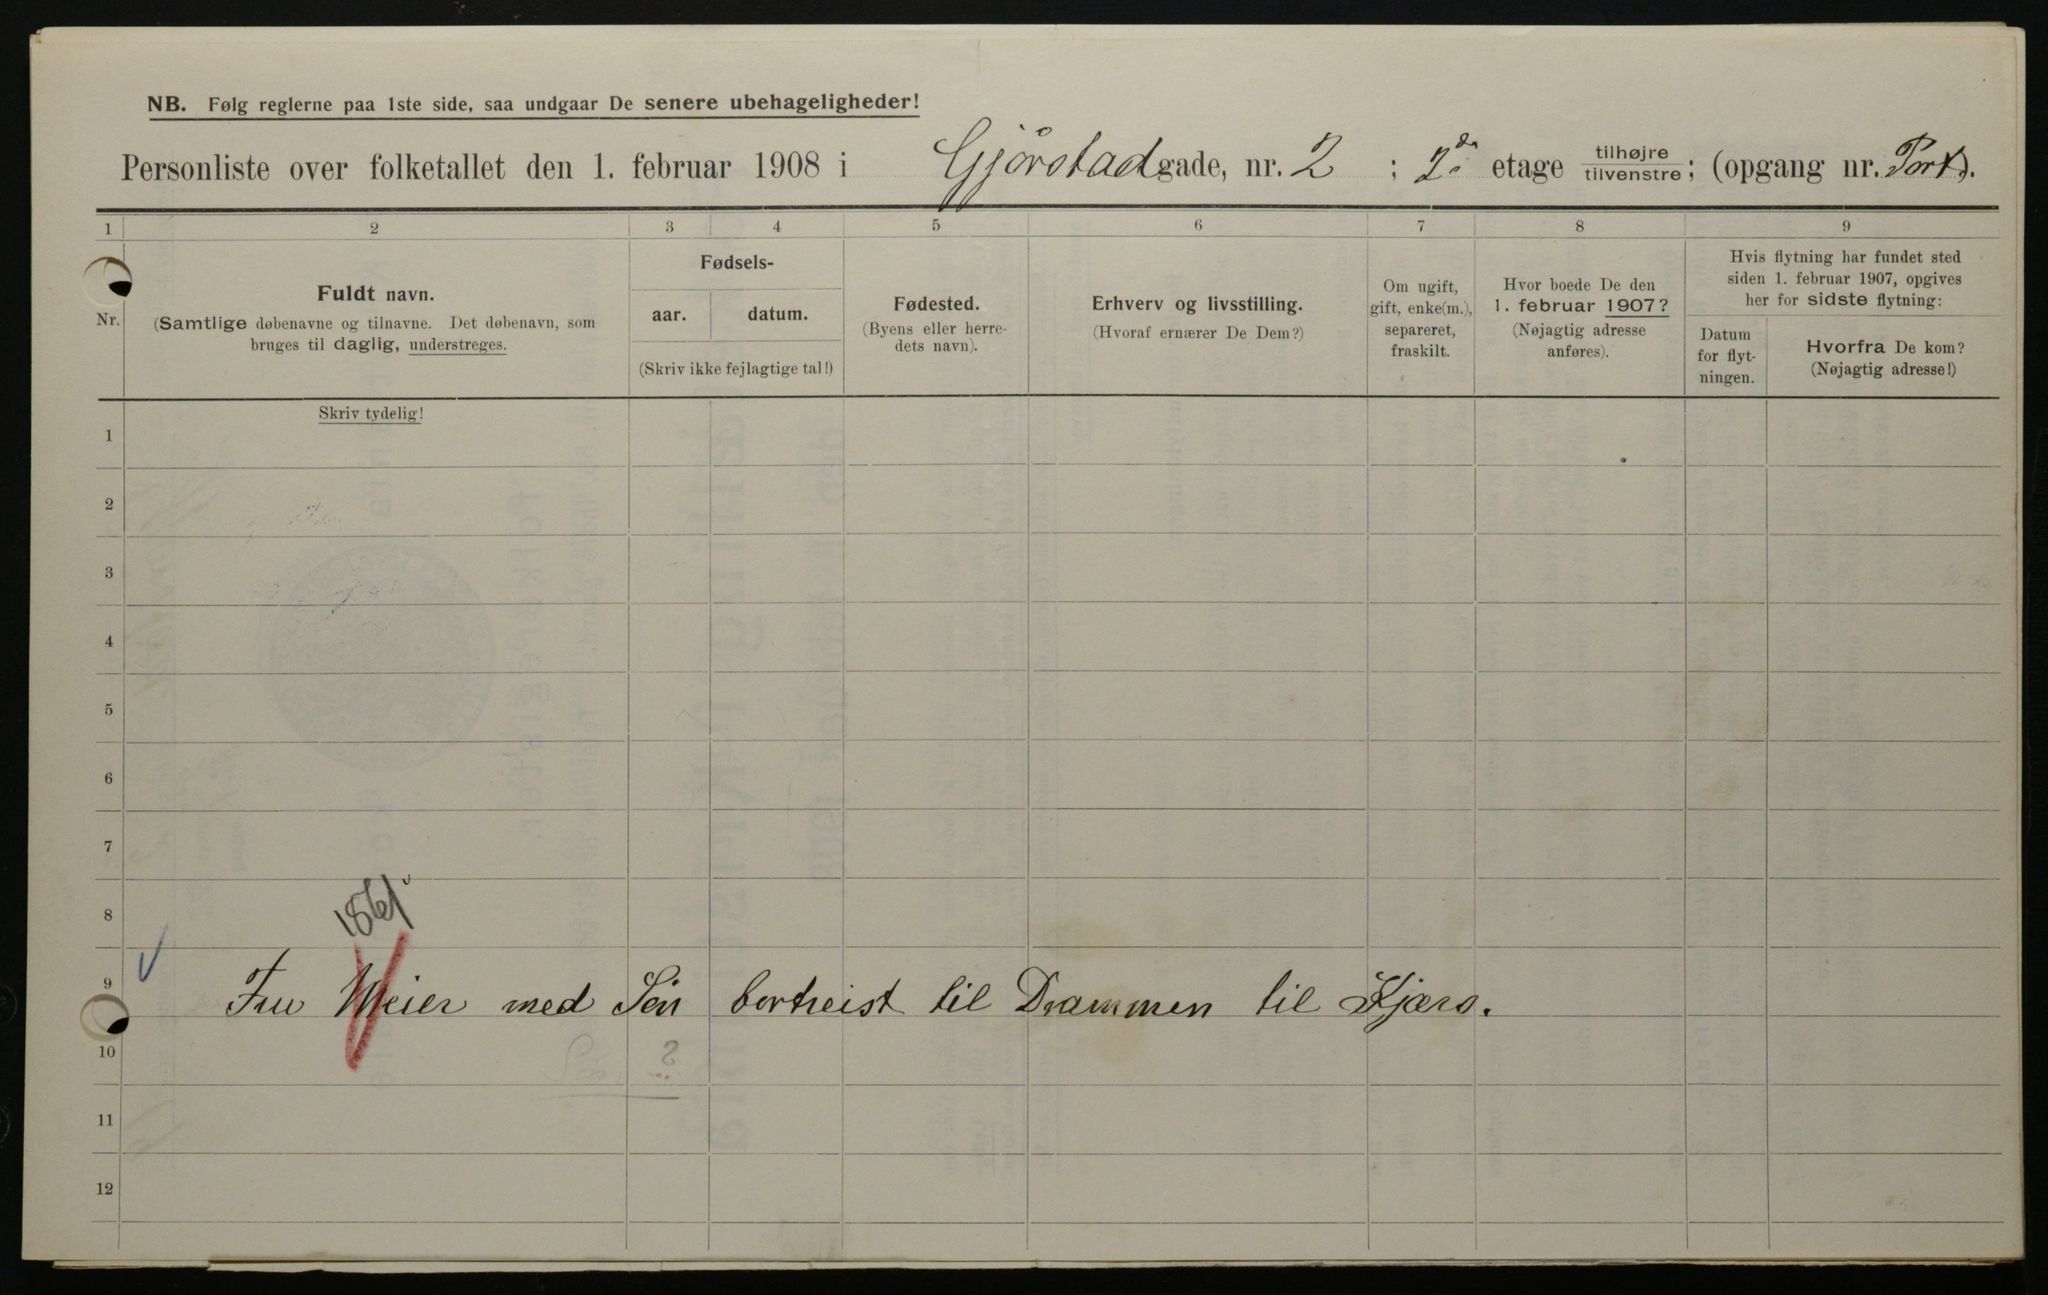 NB. Følg reglerne paa 1ste side, saa undgaar De senere ubehageligheder!
Personliste over folketallet den 1. februar 1908 i Gjörstadgade, nr. 2 ; 2den etage tilhøjre tilvenstre; (opgang nr. Port).
1 2 3 4 5 6 7 8 9
Nr.
Fuldt navn.
(Samtlige døbenavne og tilnavne. Det døbenavn, som
bruges til daglig, understreges.
Fødsels-
aar. datum.
(Skriv ikke fejlagtige tal!)
Fødested.
(Byens eller herre-
dets navn).
Erhverv og livsstilling.
(Hvoraf ernærer De Dem?)
Om ugift,
gift, enke(m.),
separeret,
fraskilt.
Hvor boede De den
1. februar 1907?
(Nøjagtig adresse
anføres).
Hvis flytning har fundet sted
siden 1. februar 1907, opgives
her for sidste flytning:
Datum
for flyt-
ningen.
Hvorfra De kom?
(Nøjagtig adresse!)
Skriv tydelig!
1
2
3
4
5
6
7
8
1861
9
Fru Meier med Sön bortreist til Drammen til Kjærs.
10
Sön ?
11
12